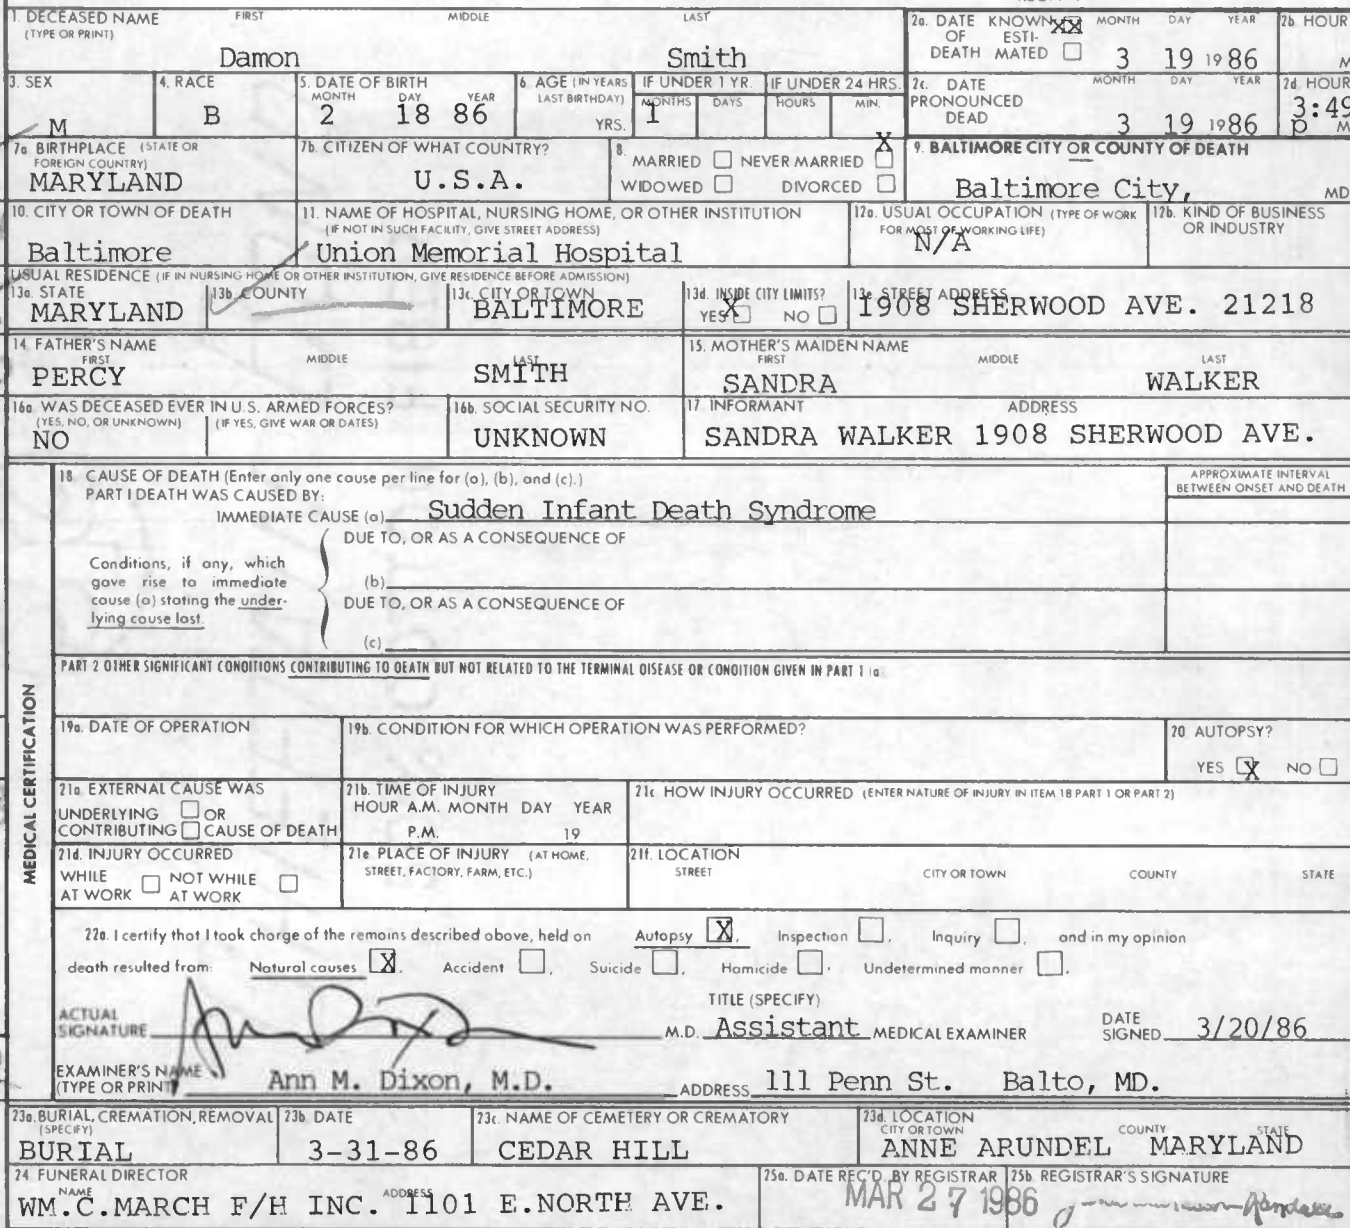 1. DECEASED NAME FIRST MIDDLE LAST
(TYPE OR PRINT)
Damon Smith
2a. DATE OF DEATH KNOWN XX ESTIMATED ☐ MONTH DAY YEAR
3 19 1986
2b. HOUR
M
3. SEX
M
4. RACE
B
5. DATE OF BIRTH
MONTH DAY YEAR
2 18 86
6 AGE (IN YEARS LAST BIRTHDAY)
YRS.
IF UNDER 1 YR. IF UNDER 24 HRS.
MONTHS DAYS HOURS MIN.
1
2c. DATE PRONOUNCED DEAD MONTH DAY YEAR
3 19 1986
2d HOUR
3:49
p M
7a BIRTHPLACE (STATE OR FOREIGN COUNTRY)
MARYLAND
7b. CITIZEN OF WHAT COUNTRY?
U.S.A.
8. MARRIED ☐ NEVER MARRIED ☐ X
WIDOWED ☐ DIVORCED ☐
9. BALTIMORE CITY OR COUNTY OF DEATH
Baltimore City, MD
10. CITY OR TOWN OF DEATH
Baltimore
11. NAME OF HOSPITAL, NURSING HOME, OR OTHER INSTITUTION
(IF NOT IN SUCH FACILITY, GIVE STREET ADDRESS)
Union Memorial Hospital
12a. USUAL OCCUPATION (TYPE OF WORK
FOR MOST OF WORKING LIFE)
N/A
12b. KIND OF BUSINESS
OR INDUSTRY
USUAL RESIDENCE (IF IN NURSING HOME OR OTHER INSTITUTION, GIVE RESIDENCE BEFORE ADMISSION)
13a. STATE
MARYLAND
13b. COUNTY
13c. CITY OR TOWN
BALTIMORE
13d. INSIDE CITY LIMITS?
YES X NO ☐
13e. STREET ADDRESS
1908 SHERWOOD AVE. 21218
14. FATHER'S NAME
FIRST MIDDLE LAST
PERCY SMITH
15. MOTHER'S MAIDEN NAME
FIRST MIDDLE LAST
SANDRA WALKER
16a. WAS DECEASED EVER IN U.S. ARMED FORCES?
(YES, NO, OR UNKNOWN) (IF YES, GIVE WAR OR DATES)
NO
16b. SOCIAL SECURITY NO.
UNKNOWN
17. INFORMANT ADDRESS
SANDRA WALKER 1908 SHERWOOD AVE.
MEDICAL CERTIFICATION
18 CAUSE OF DEATH (Enter only one cause per line for (a), (b), and (c).)
PART I DEATH WAS CAUSED BY:
IMMEDIATE CAUSE (a) Sudden Infant Death Syndrome
APPROXIMATE INTERVAL
BETWEEN ONSET AND DEATH
DUE TO, OR AS A CONSEQUENCE OF
Conditions, if any, which
gave rise to immediate
cause (a) stating the under-
lying cause last.
(b)
DUE TO, OR AS A CONSEQUENCE OF
(c)
PART 2 OTHER SIGNIFICANT CONDITIONS CONTRIBUTING TO DEATH BUT NOT RELATED TO THE TERMINAL DISEASE OR CONDITION GIVEN IN PART 1 (a)
19a. DATE OF OPERATION
19b. CONDITION FOR WHICH OPERATION WAS PERFORMED?
20 AUTOPSY?
YES X NO ☐
21a EXTERNAL CAUSE WAS
UNDERLYING ☐ OR
CONTRIBUTING ☐ CAUSE OF DEATH
21b. TIME OF INJURY
HOUR A.M. MONTH DAY YEAR
P.M. 19
21c HOW INJURY OCCURRED (ENTER NATURE OF INJURY IN ITEM 18 PART 1 OR PART 2)
21d. INJURY OCCURRED
WHILE AT WORK ☐ NOT WHILE AT WORK ☐
21e PLACE OF INJURY (AT HOME,
STREET, FACTORY, FARM, ETC.)
21f. LOCATION
STREET CITY OR TOWN COUNTY STATE
22a. I certify that I took charge of the remains described above, held on Autopsy X, Inspection ☐, Inquiry ☐, and in my opinion
death resulted from: Natural causes X, Accident ☐, Suicide ☐, Homicide ☐, Undetermined manner ☐.
TITLE (SPECIFY)
ACTUAL SIGNATURE M.D. Assistant MEDICAL EXAMINER DATE SIGNED 3/20/86
EXAMINER'S NAME
(TYPE OR PRINT) Ann M. Dixon, M.D. ADDRESS 111 Penn St. Balto, MD.
23a. BURIAL, CREMATION, REMOVAL
(SPECIFY)
BURIAL
23b. DATE
3-31-86
23c. NAME OF CEMETERY OR CREMATORY
CEDAR HILL
23d. LOCATION
CITY OR TOWN COUNTY STATE
ANNE ARUNDEL MARYLAND
24 FUNERAL DIRECTOR
NAME ADDRESS
WM.C.MARCH F/H INC. 1101 E.NORTH AVE.
25a. DATE REC'D. BY REGISTRAR
MAR 27 1986
25b. REGISTRAR'S SIGNATURE